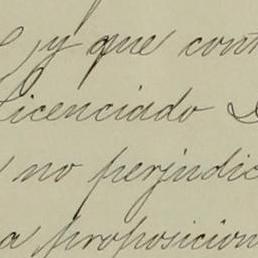 y que cont
Licenciado D
no perjudic
a proposicion